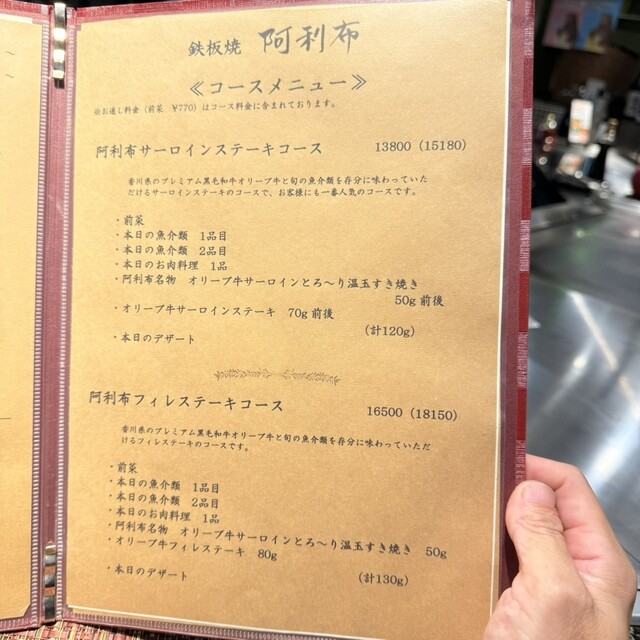 鉄板焼 阿利布
≪コースメニュー≫
※お通し料金(前菜 ¥770)はコース料金に含まれております。
阿利布サーロインステーキコース 13800(15180)
香川県のプレミアム黒毛和牛オリーブ牛と旬の魚介類を存分に味わっていた
だけるサーロインステーキのコースで、お客様にも一番人気のコースです。
・前菜
・本日の魚介類 1品目
・本日の魚介類 2品目
・本日のお肉料理 1品
・阿利布名物 オリーブ牛サーロインとろ〜り温玉すき焼き
50g前後
・オリーブ牛サーロインステーキ 70g前後
(計120g)
・本日のデザート
阿利布フィレステーキコース 16500(18150)
香川県のプレミアム黒毛和牛オリーブ牛と旬の魚介類を存分に味わっていただ
けるフィレステーキのコースです。
・前菜
・本日の魚介類 1品目
・本日の魚介類 2品目
・本日のお肉料理 1品
・阿利布名物 オリーブ牛サーロインとろ〜り温玉すき焼き 50g
・オリーブ牛フィレステーキ 80g
(計130g)
・本日のデザート